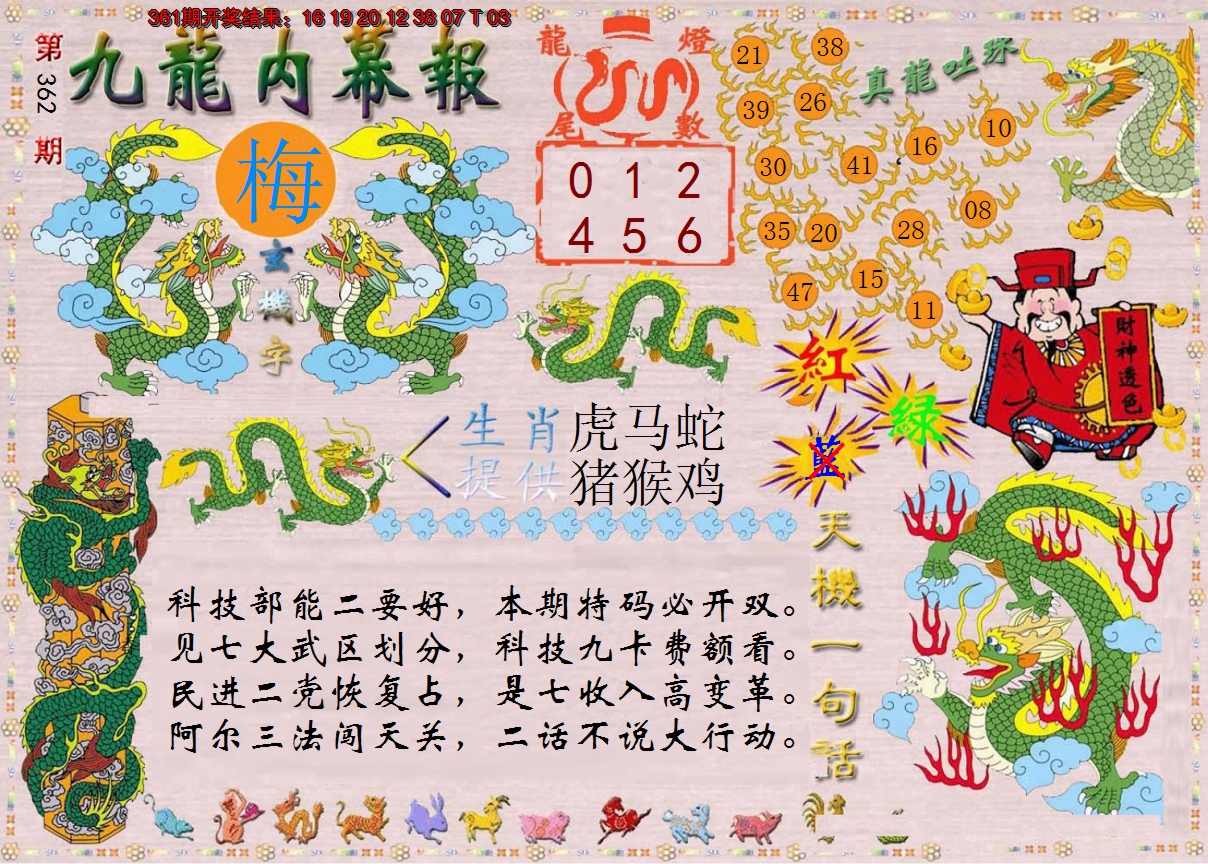 361期开奖结果：16 19 20 12 38 07 T 03
第362期
九龍内幕報
梅
玄機字
龍燈
尾數
0 1 2
4 5 6
真龍吐珠
21
38
39
26
16
10
30
41
08
35
20
28
15
47
11
紅
綠
藍
財神透色
生肖提供
虎马蛇
猪猴鸡
天機一句話
科技部能二要好，本期特码必开双。
见七大武区划分，科技九卡费额看。
民进二党恢复占，是七收入高变革。
阿尔三法闯天关，二话不说大行动。